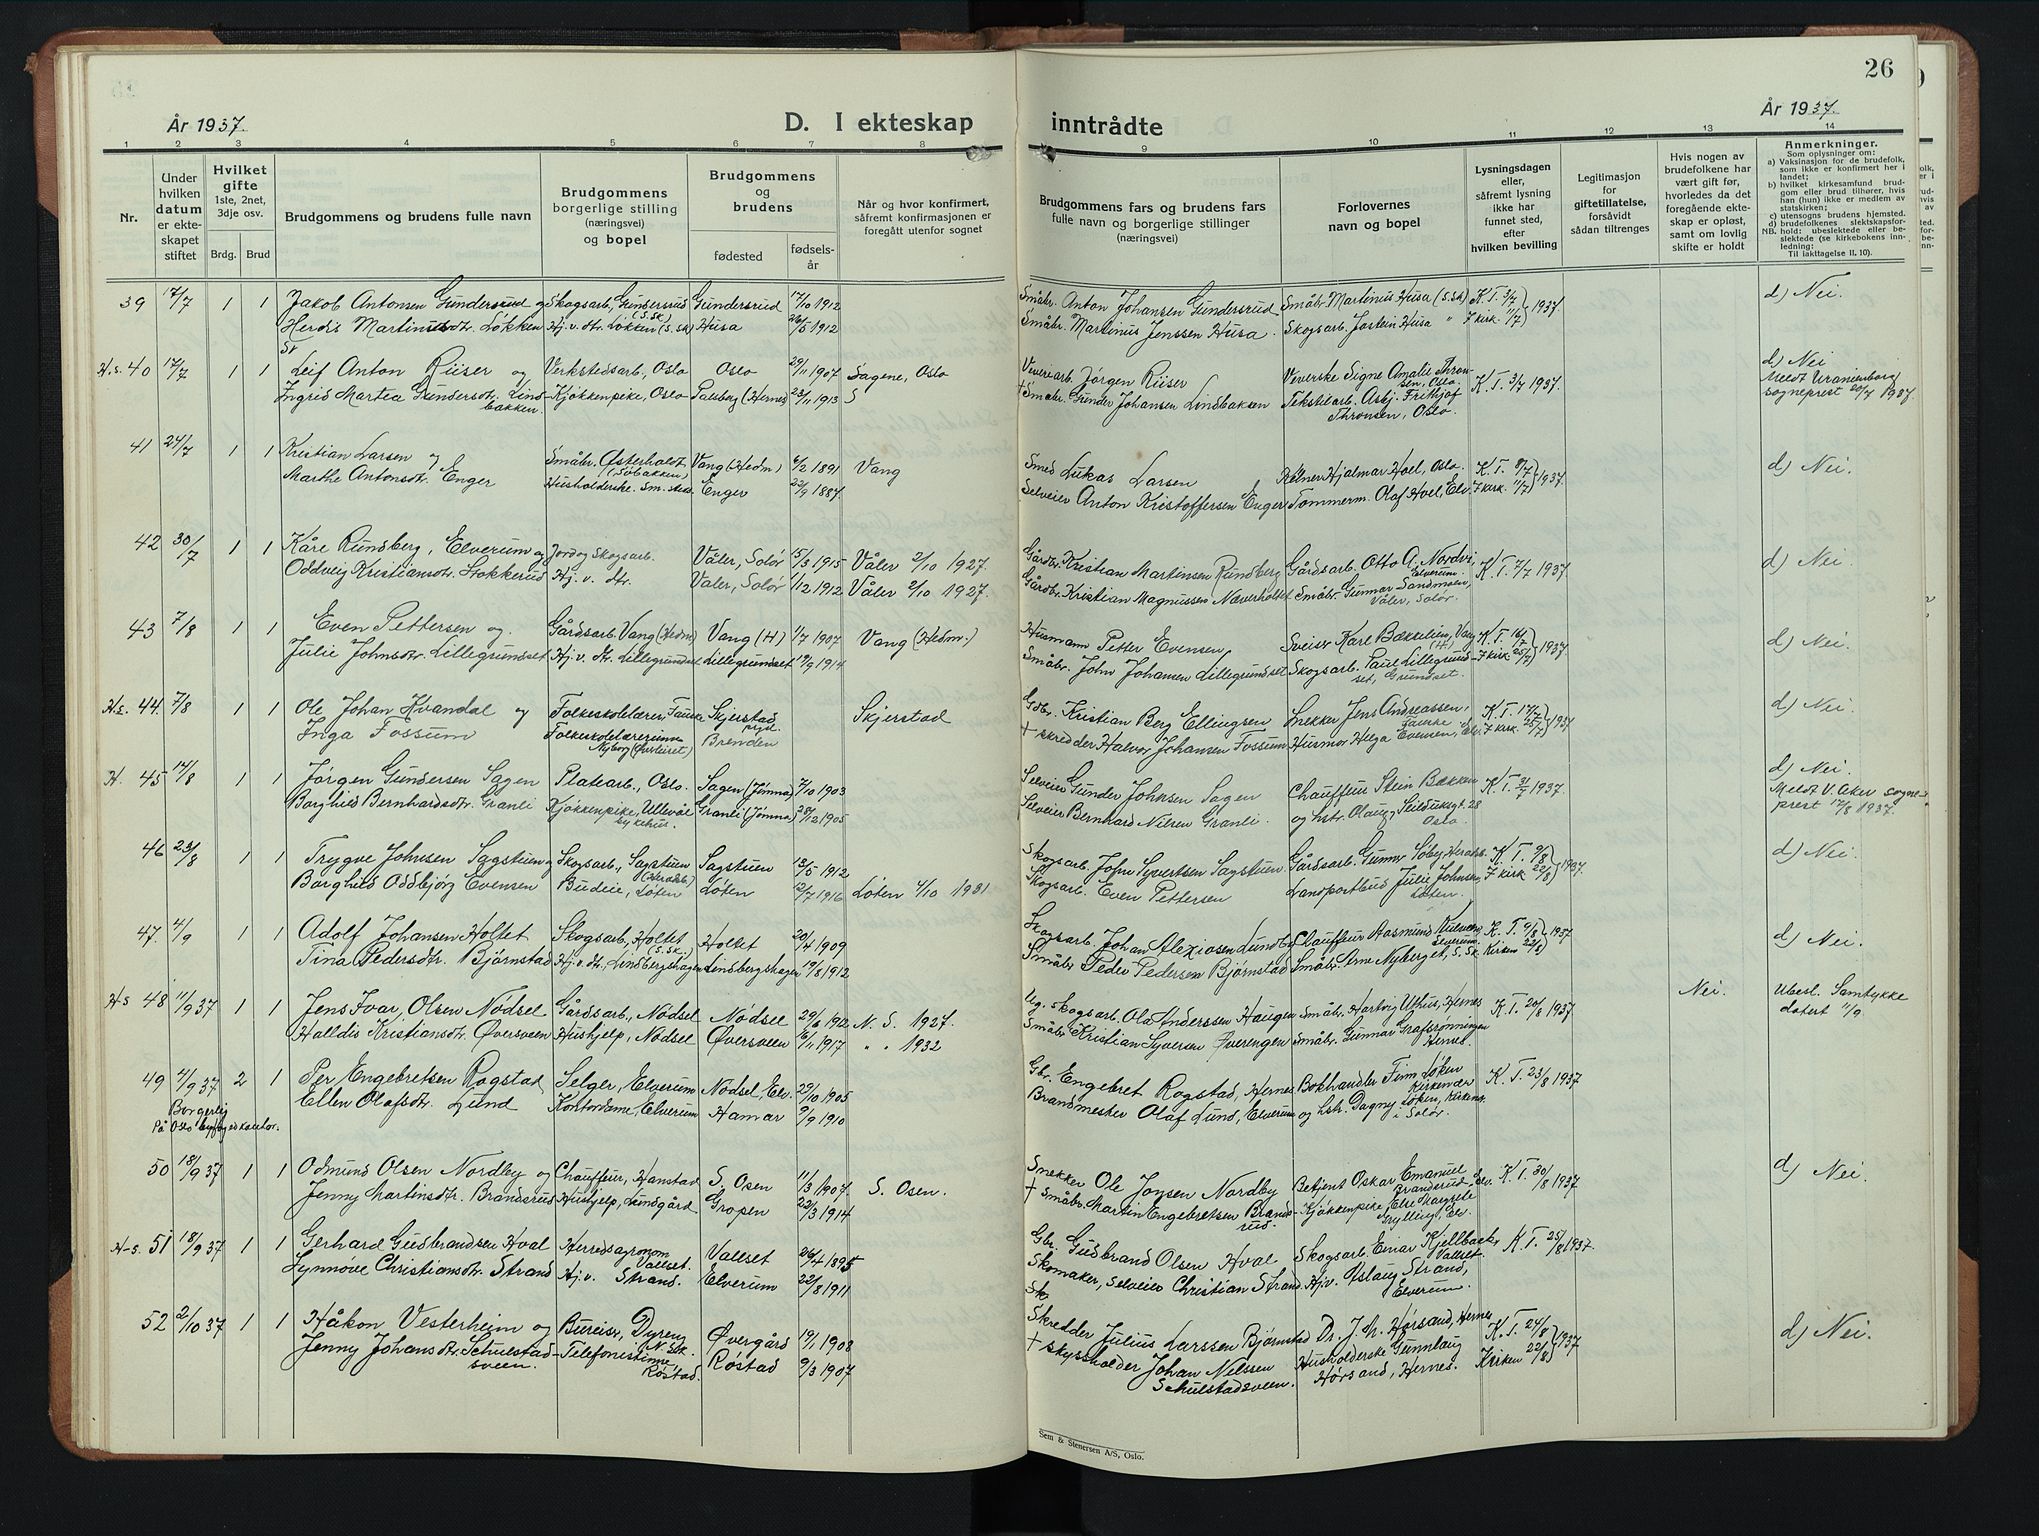 26
År 1937.
D. I ekteskap
inntrådte
År 1937.
1 2 3 4 5 6 7 8 9 10 11 12 13 14
Nr.
Under
hvilken
datum
er ekte-
skapet
stiftet
Hvilket
gifte
1ste, 2net,
3dje osv.
Brdg. Brud
Brudgommens og brudens fulle navn
Brudgommens
borgerlige stilling
(næringsvei)
og bopel
Brudgommens
og
brudens
fødested
fødsels-
år
Når og hvor konfirmert,
såfremt konfirmasjonen er
foregått utenfor sognet
Brudgommens fars og brudens fars
fulle navn og borgerlige stillinger
(næringsvei)
Forlovernes
navn og bopel
Lysningsdagen
eller,
såfremt lysning
ikke har
funnet sted,
efter
hvilken bevilling
Legitimasjon
for
giftetillatelse,
forsåvidt
sådan tiltrenges
Hvis nogen av
brudefolkene har
vært gift før,
hvorledes da det
foregående ekte-
skap er opløst,
samt om lovlig
skifte er holdt
Anmerkninger.
Som oplysninger om:
a) Vaksinasjon for de brudefolk,
som ikke er konfirmert her i
landet;
b) hvilket kirkesamfund brud-
gom eller brud tilhører, hvis
han (hun) ikke er medlem av
statskirken;
c) utensogns brudens hjemsted.
d) brudefolkenes slektskapsfor-
NB. hold: ubeslektede eller be-
slektede (se kirkebokens inn-
ledning:
Til iakttagelse II, 10).
39 17/7 1 1 Jakob Antonsen Gundersrud og Skogsarb., Gundersrud (S.Sk) Gundersrud 17/10 1912 Småbr. Anton Johansen Gundersrud Småbr. Martinus Husa (S.Sk) K.T. 3/7 1937 d) Nei.
Herdis Martinusdtr. Løkken Hj.v. dtr. Løkken (S.Sk) Husa 26/5 1912 Småbr. Martinus Jenssen Husa. Skogsarb. Jostein Husa " I kirk. 11/7
H.s. 40 17/7 1 1 Leif Anton Riiser og Verkstedsarb., Oslo Oslo 29/11 1907 Sagene, Oslo Veverarb. Jørgen Riiser Veverske Signe Amalie Thronsen, Oslo. K.T. 3/7 1937. d) Nei
Ingrid Martea Gundersdtr. Lindbakken. Kjøkkenpike, Oslo (Hernes) 23/11 1913 S + Småbr. Gunder Johansen Lindbakken Tekstilarb. Asbj. Frithjof Thronsen, Oslo. Meldt Uranienborg sogneprest 20/7 1937.
41 24/7 1 1 Kristian Larsen og Småbr. Østerholdt (Søbakken) Vang (Hedm) 6/2 1891 Vang Smed Lukas Larsen Kelner Hjalmar Hoel, Oslo. K.T. 8/7 1937. d) Nei.
Marthe Antonsdtr. Enger Husholderske Enger 22/9 1887. Selveier Anton Kristoffersen Enger Tømmerm. Olaf Hoel, Elv. I kirk. 11/7
42 30/7 1 1 Kåre Rundberg, Elverum og Jord og Skogsarb. Våler, Solør 15/3 1915 Våler 2/10 1927. Gårdbr. Kristian Martinsen Rundberg Gårdsarb. Otto A. Nordvi, Elverum. K.T. 7/7 1937. d) Nei.
Oddveig Kristiansdtr. Stokkerud Hj. v. dtr. Våler, Solør 1/12 1912 Våler 2/10 1927. Gårdbr. Kristian Magnussen Næverholtet Småbr. Gunnar Sandmoen, Våler, Solør.
43 7/8 1 1 Even Pettersen og Gårdsarb. Vang (Hedm) Vang (H) 1/7 1907 Vang (Hedm.) Husmann Petter Evensen Sveiser Karl Bækkelien, Vang (H.) K.T. 16/7 1937 d) Nei.
Julie Johnsdtr. Lillegrundset Hj.v. dtr. Lillegrundset Lillegrundset 19/9 1914 Småbr. John Johansen Lillegrundset Skogsarb. Paul Lillegrundset, Grundset. I kirk. 25/7
H.s. 44. 7/8 1 1 Ole Johan Kvandal og Folkeskolelærer, Fauske Skjerstad Skjerstad Gdbr. Kristian Berg Ellingsen Snekker Jens Andreassen, Fauske K.T. 17/7 1937 d) Nei.
Inga Fossum Folkeskolelærerinne Nyborg Brenden + skredder Halvor Johansen Fossum Husmor Helga Evensen, Elv. I kirk. 25/7
H. 45 14/8 1 1 Jørgen Gundersen Sagen Platearb., Oslo. Sagen (Jømna) 7/10 1903 Selveier Gunder Johnsen Sagen Chauffeur Stein Bækken K.T. 31/7 1937. d) Nei.
Borghild Bernhardsdtr. Granli Kjøkkenpike, Ullevål sykehus. Granli (Jømna) 28/12 1905 Selveier Bernhard Nilsen Granli. og hstr. Olaug, Seilduksgt. 28 Oslo. Meldt V. Aker sogneprest 17/8 1937.
46 23/8 1 1 Trygve Johnsen Sagstuen og Skogsarb., Sagstuen Sagstuen 13/5 1912 Skogsarb. John Syvertsen Sagstuen Gårdsarb. Gunnar Søby, K.T. 9/8 1937. d) Nei.
Borghild Oddbjørg Evensen Budeie, Løten Løten 12/7 1916 Løten 4/10 1931 Skogsarb. Even Pettersen Landpostbud Julie Johnsen, Løten. I kirk 22/8
47. 4/9 1 1 Adolf Johansen Holtet Skogsarb., Holtet (S.Sk.) Holtet 20/4 1909 Skogsarb. Johan Alexiosen Lundby Chauffeur Rasmund Elverum. K.T. 6/8 1937 d) Nei.
Tina Pedersdtr. Bjørnstad Hj.v. dtr., Lindbergshagen Lindbergshagen 19/8 1912 Småbr. Peder Pedersen Bjørnstad Småbr. Arne Nyberget, S.Sk. Kirken 22/8
H s 48 11/9 37 1 1 Jens Ivar Olsen Nødsel Gårdsarb., Nødsel Nødsel 29/6 1912 N. S. 1927. Ug. skogsarb. Ola Anderssen Haugen Småbr. Hartvig Uthus, Hernes K.T. 20/8 1937 Nei. Ubesl. Samtykke
Halldis Kristiansdtr. Øversveen Hushjelp, Nødsel Øversveen 6/11 1917 " " 1932 Småbr. Kristian Syversen Øverengen Småbr. Gunnar Grafsrønningen Hernes. datert 11/9.
49 4/9 37 2 1 Per Engebretsen Rogstad Selger, Elverum Nødsel, Elv. 29/10 1905 Gbr. Engebret Rogstad, Hernes Bokhandler Finn Løken Kirkenær K.T. 23/8 1937
Borgerlig Ellen Olafsdtr. Lund Kontordame, Elverum Hamar 9/9 1910 Brandmester Olaf Lund, Elverum og hstr. Dagny Løken, Kirkenær i Solør.
På Oslo byfogedkontor.
50 18/9 37 1 1 Odmund Olsen Nordby og Chauffeur, Hanstad S. Osen 11/3 1907. S. Osen. Snekker Ole Jonsen Nordby Betjent Oskar Emanuel Brandsrud, Elv. K.T. 30/8 1937 d) Nei.
Jenny Martinsdtr. Brandsrud Hushjelp, Lundgård Gropen 22/3 1914 + Småbr. Martin Engebretsen Brandsrud. Kjøkkenpike Else Margrete Gylling, Elv.
H-s. 51 18/9 37 1 1 Gerhard Gudbrandsen Hval Herredsagronom Vallset. Vallset 26/4 1895 Gbr. Gudbrand Olsen Hval Skogsarb. Einar Kjellbækk, Vallset. K.T. 25/8 1937.
Synnøve Christiansdtr. Strand Hj.v. Strand. Elverum 22/8 1911 Skomaker, Selveier Christian Strand. Hjv. Aslaug Strand, Elverum.
52 2/10 37 1 1 Håkon Vesterheim og Bureiser, Dyreng N. Sk. Øvergård 19/1 1908 Skredder Julius Larssen Bjørnstad Dr. J. M. Hørsand, Hernes K.T. 24/8 1937 d) Nei.
Jenny Johansdtr. Schulstadsveen. Telefonistinne, Røstad. Røstad 9/3 1907 + skyssholder Johan Nelssen Schulstadsveen. Husholderske Gunnlaug Hørsand, Hernes. Kirken 22/8
Sem & Stenersen A/S, Oslo.